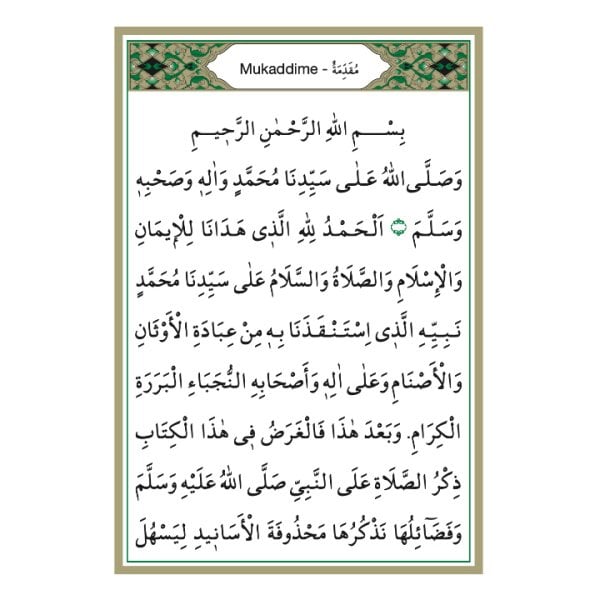 Mukaddime - مُقَدِّمَةٌ
بِسْــــمِ اللهِ الرَّحْمٰنِ الرَّحٖيــمِ
وَصَلَّى اللهُ عَلٰى سَيِّدِنَا مُحَمَّدٍ وَاٰلِهٖ وَصَحْبِهٖ
وَسَلَّمَ ۝ اَلْحَمْدُ لِلّٰهِ الَّذٖى هَدَانَا لِلْاٖيمَانِ
وَالْاِسْلَامِ وَالصَّلَاةُ وَالسَّلَامُ عَلٰى سَيِّدِنَا مُحَمَّدٍ
نَبِيِّهِ الَّذٖى اِسْتَنْقَذَنَا بِهٖ مِنْ عِبَادَةِ الْأَوْثَانِ
وَالْأَصْنَامِ وَعَلٰى اٰلِهٖ وَأَصْحَابِهِ النُّجَبَاءِ الْبَرَرَةِ
الْكِرَامِ. وَبَعْدَ هٰذَا فَالْغَرَضُ فٖى هٰذَا الْكِتَابِ
ذِكْرُ الصَّلَاةِ عَلَى النَّبِيِّ صَلَّى اللهُ عَلَيْهِ وَسَلَّمَ
وَفَضَٓائِلُهَا نَذْكُرُهَا مَحْذُوفَةَ الْأَسَانٖيدِ لِيَسْهُلَ